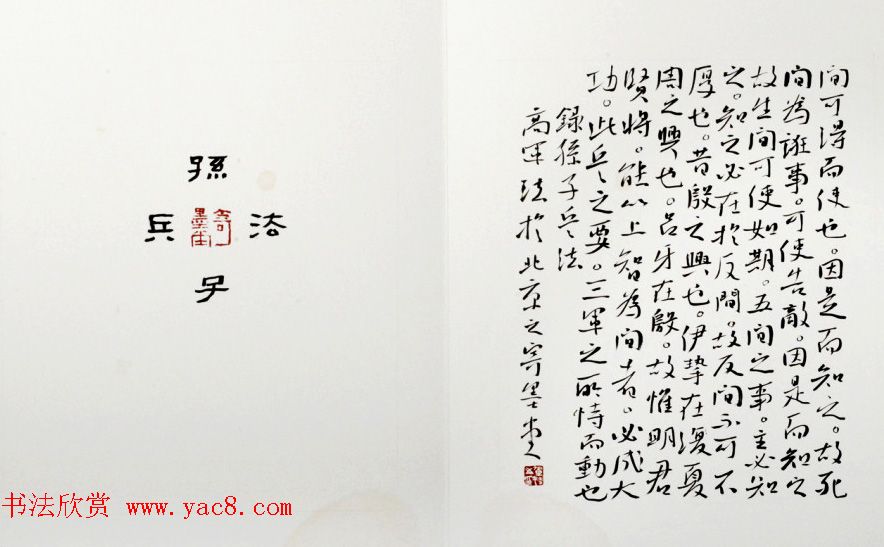 間可得而使也。因是而知之。故死
間為誑事。可使告敵。因是而知之
故生間可使如期。五間之事。主必知
之。知之必在於反間。故反間不可不
厚也。昔殷之興也。伊摯在夏
周之興也。呂牙在殷。故惟明君
賢將。能以上智為間者。必成大
功。此兵之要。三軍之所恃而動也
錄孫子兵法
高軍法於北京之寄墨堂
孫
子
兵 法
书法欣赏 www.yac8.com